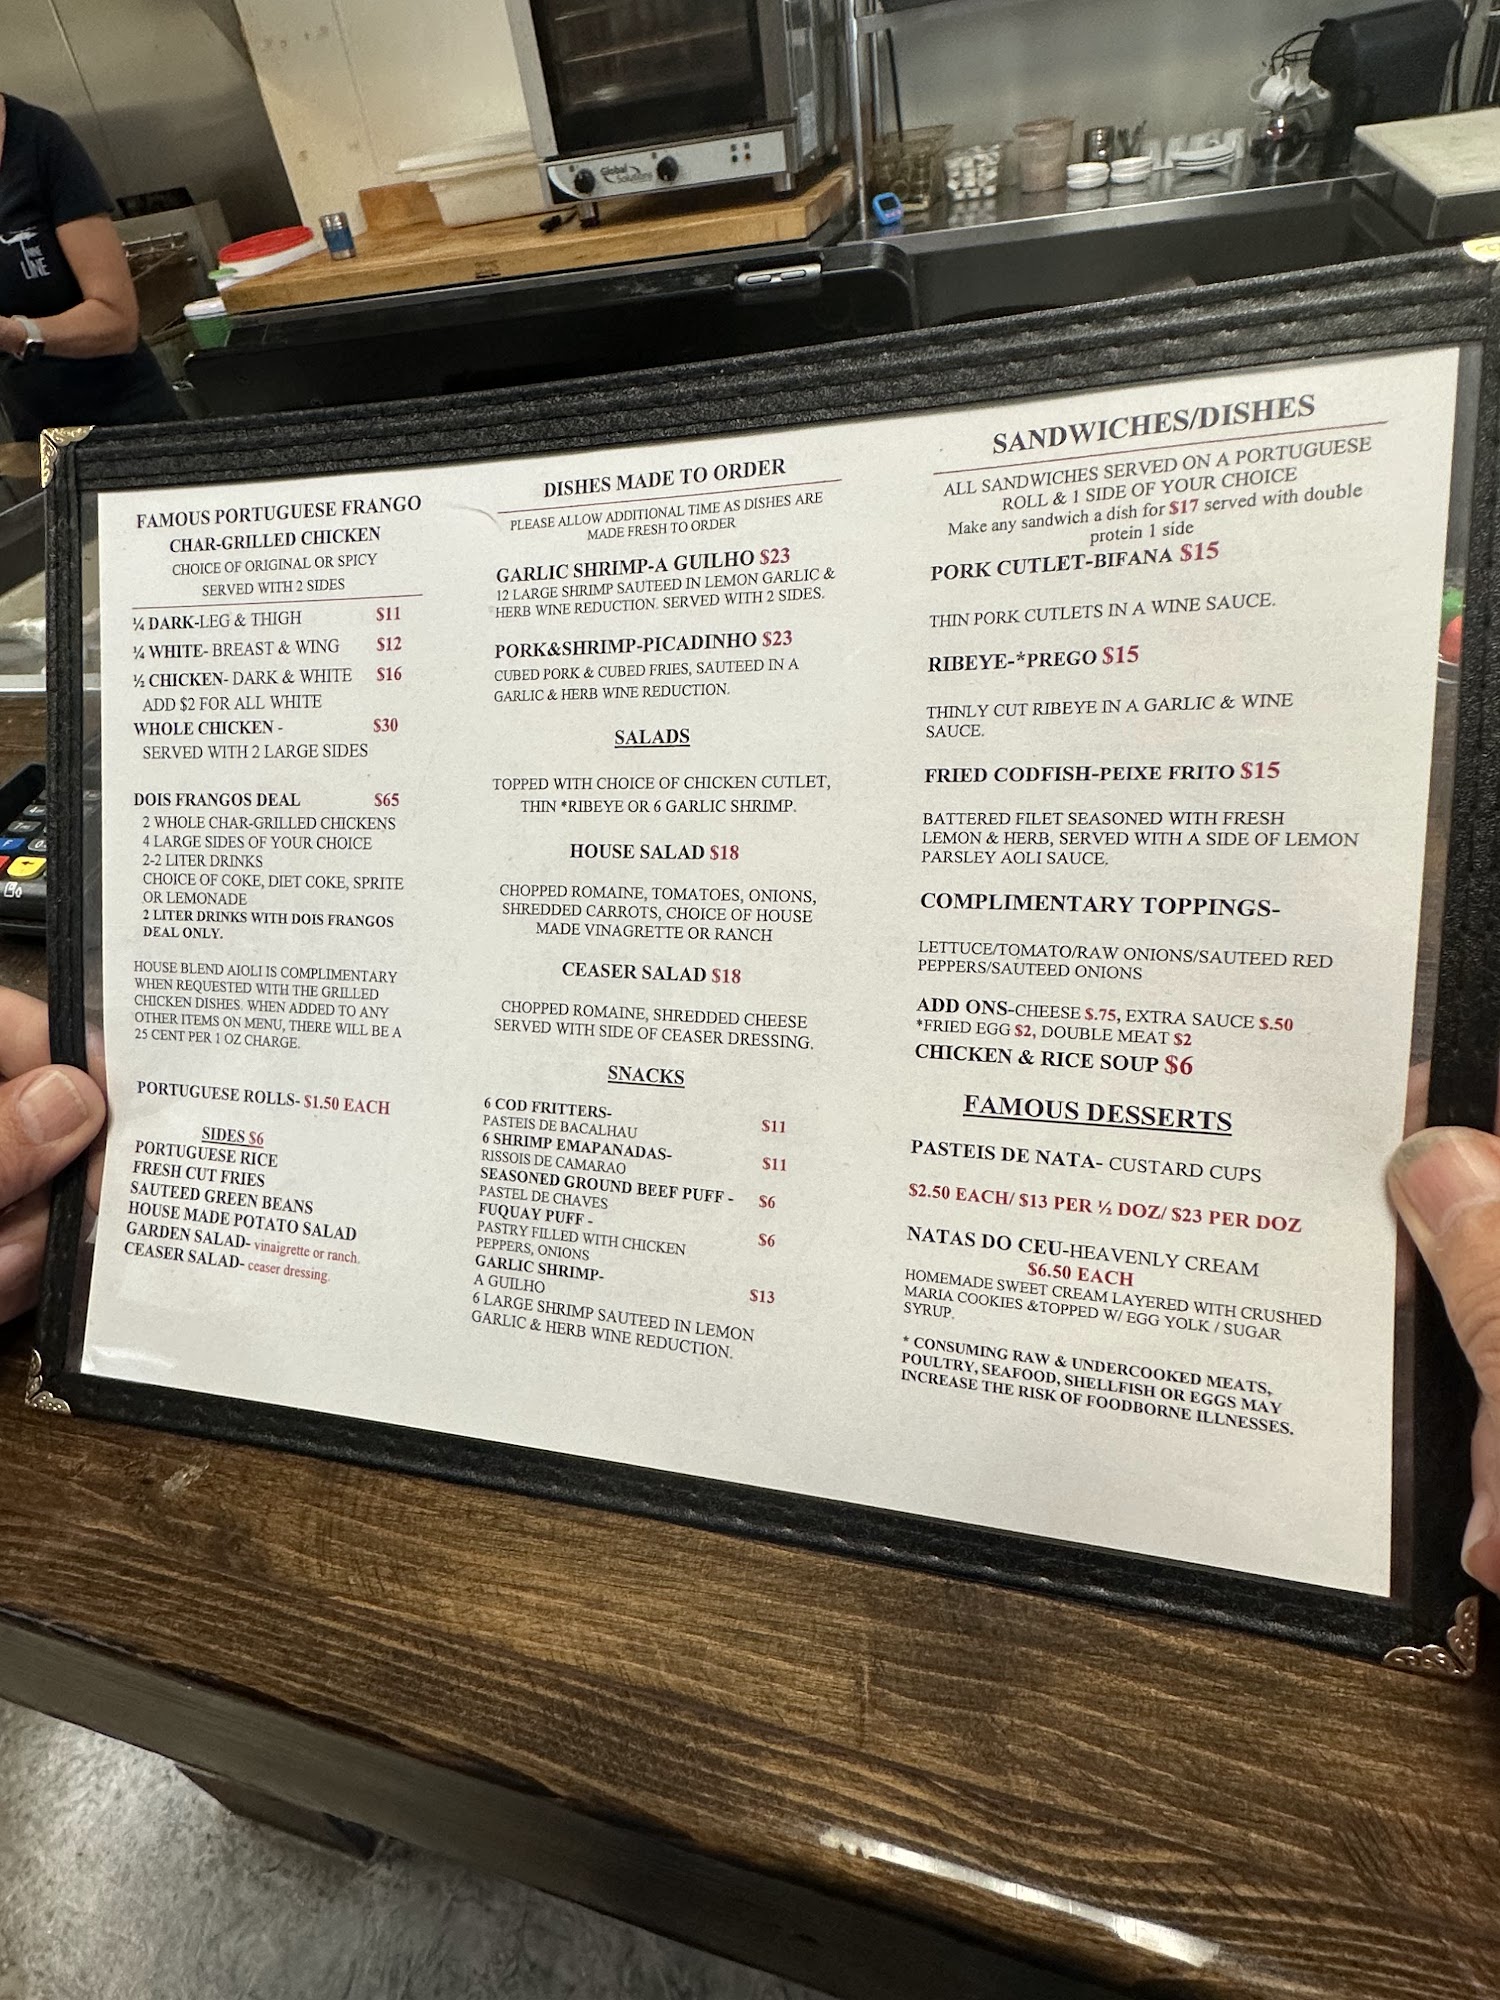 Global Solutions
LINE
FAMOUS PORTUGUESE FRANGO
CHAR-GRILLED CHICKEN
CHOICE OF ORIGINAL OR SPICY
SERVED WITH 2 SIDES
¼ DARK-LEG & THIGH $11
¼ WHITE- BREAST & WING $12
½ CHICKEN- DARK & WHITE $16
ADD $2 FOR ALL WHITE
WHOLE CHICKEN - $30
SERVED WITH 2 LARGE SIDES
DOIS FRANGOS DEAL $65
2 WHOLE CHAR-GRILLED CHICKENS
4 LARGE SIDES OF YOUR CHOICE
2-2 LITER DRINKS
CHOICE OF COKE, DIET COKE, SPRITE
OR LEMONADE
2 LITER DRINKS WITH DOIS FRANGOS
DEAL ONLY.
HOUSE BLEND AIOLI IS COMPLIMENTARY
WHEN REQUESTED WITH THE GRILLED
CHICKEN DISHES. WHEN ADDED TO ANY
OTHER ITEMS ON MENU, THERE WILL BE A
25 CENT PER 1 OZ CHARGE.
PORTUGUESE ROLLS- $1.50 EACH
SIDES $6
PORTUGUESE RICE
FRESH CUT FRIES
SAUTEED GREEN BEANS
HOUSE MADE POTATO SALAD
GARDEN SALAD- vinaigrette or ranch.
CEASER SALAD- ceaser dressing.
DISHES MADE TO ORDER
PLEASE ALLOW ADDITIONAL TIME AS DISHES ARE
MADE FRESH TO ORDER
GARLIC SHRIMP-A GUILHO $23
12 LARGE SHRIMP SAUTEED IN LEMON GARLIC &
HERB WINE REDUCTION. SERVED WITH 2 SIDES.
PORK&SHRIMP-PICADINHO $23
CUBED PORK & CUBED FRIES, SAUTEED IN A
GARLIC & HERB WINE REDUCTION.
SALADS
TOPPED WITH CHOICE OF CHICKEN CUTLET,
THIN *RIBEYE OR 6 GARLIC SHRIMP.
HOUSE SALAD $18
CHOPPED ROMAINE, TOMATOES, ONIONS,
SHREDDED CARROTS, CHOICE OF HOUSE
MADE VINAGRETTE OR RANCH
CEASER SALAD $18
CHOPPED ROMAINE, SHREDDED CHEESE
SERVED WITH SIDE OF CEASER DRESSING.
SNACKS
6 COD FRITTERS-
PASTEIS DE BACALHAU $11
6 SHRIMP EMAPANADAS-
RISSOIS DE CAMARAO $11
SEASONED GROUND BEEF PUFF - $6
PASTEL DE CHAVES
FUQUAY PUFF -
PASTRY FILLED WITH CHICKEN $6
PEPPERS, ONIONS
GARLIC SHRIMP-
A GUILHO $13
6 LARGE SHRIMP SAUTEED IN LEMON
GARLIC & HERB WINE REDUCTION.
SANDWICHES/DISHES
ALL SANDWICHES SERVED ON A PORTUGUESE
ROLL & 1 SIDE OF YOUR CHOICE
Make any sandwich a dish for $17 served with double
protein 1 side
PORK CUTLET-BIFANA $15
THIN PORK CUTLETS IN A WINE SAUCE.
RIBEYE-*PREGO $15
THINLY CUT RIBEYE IN A GARLIC & WINE
SAUCE.
FRIED CODFISH-PEIXE FRITO $15
BATTERED FILET SEASONED WITH FRESH
LEMON & HERB, SERVED WITH A SIDE OF LEMON
PARSLEY AOLI SAUCE.
COMPLIMENTARY TOPPINGS-
LETTUCE/TOMATO/RAW ONIONS/SAUTEED RED
PEPPERS/SAUTEED ONIONS
ADD ONS-CHEESE $.75, EXTRA SAUCE $.50
*FRIED EGG $2, DOUBLE MEAT $2
CHICKEN & RICE SOUP $6
FAMOUS DESSERTS
PASTEIS DE NATA- CUSTARD CUPS
$2.50 EACH/ $13 PER ½ DOZ/ $23 PER DOZ
NATAS DO CEU-HEAVENLY CREAM
$6.50 EACH
HOMEMADE SWEET CREAM LAYERED WITH CRUSHED
MARIA COOKIES &TOPPED W/ EGG YOLK / SUGAR
SYRUP.
* CONSUMING RAW & UNDERCOOKED MEATS,
POULTRY, SEAFOOD, SHELLFISH OR EGGS MAY
INCREASE THE RISK OF FOODBORNE ILLNESSES.